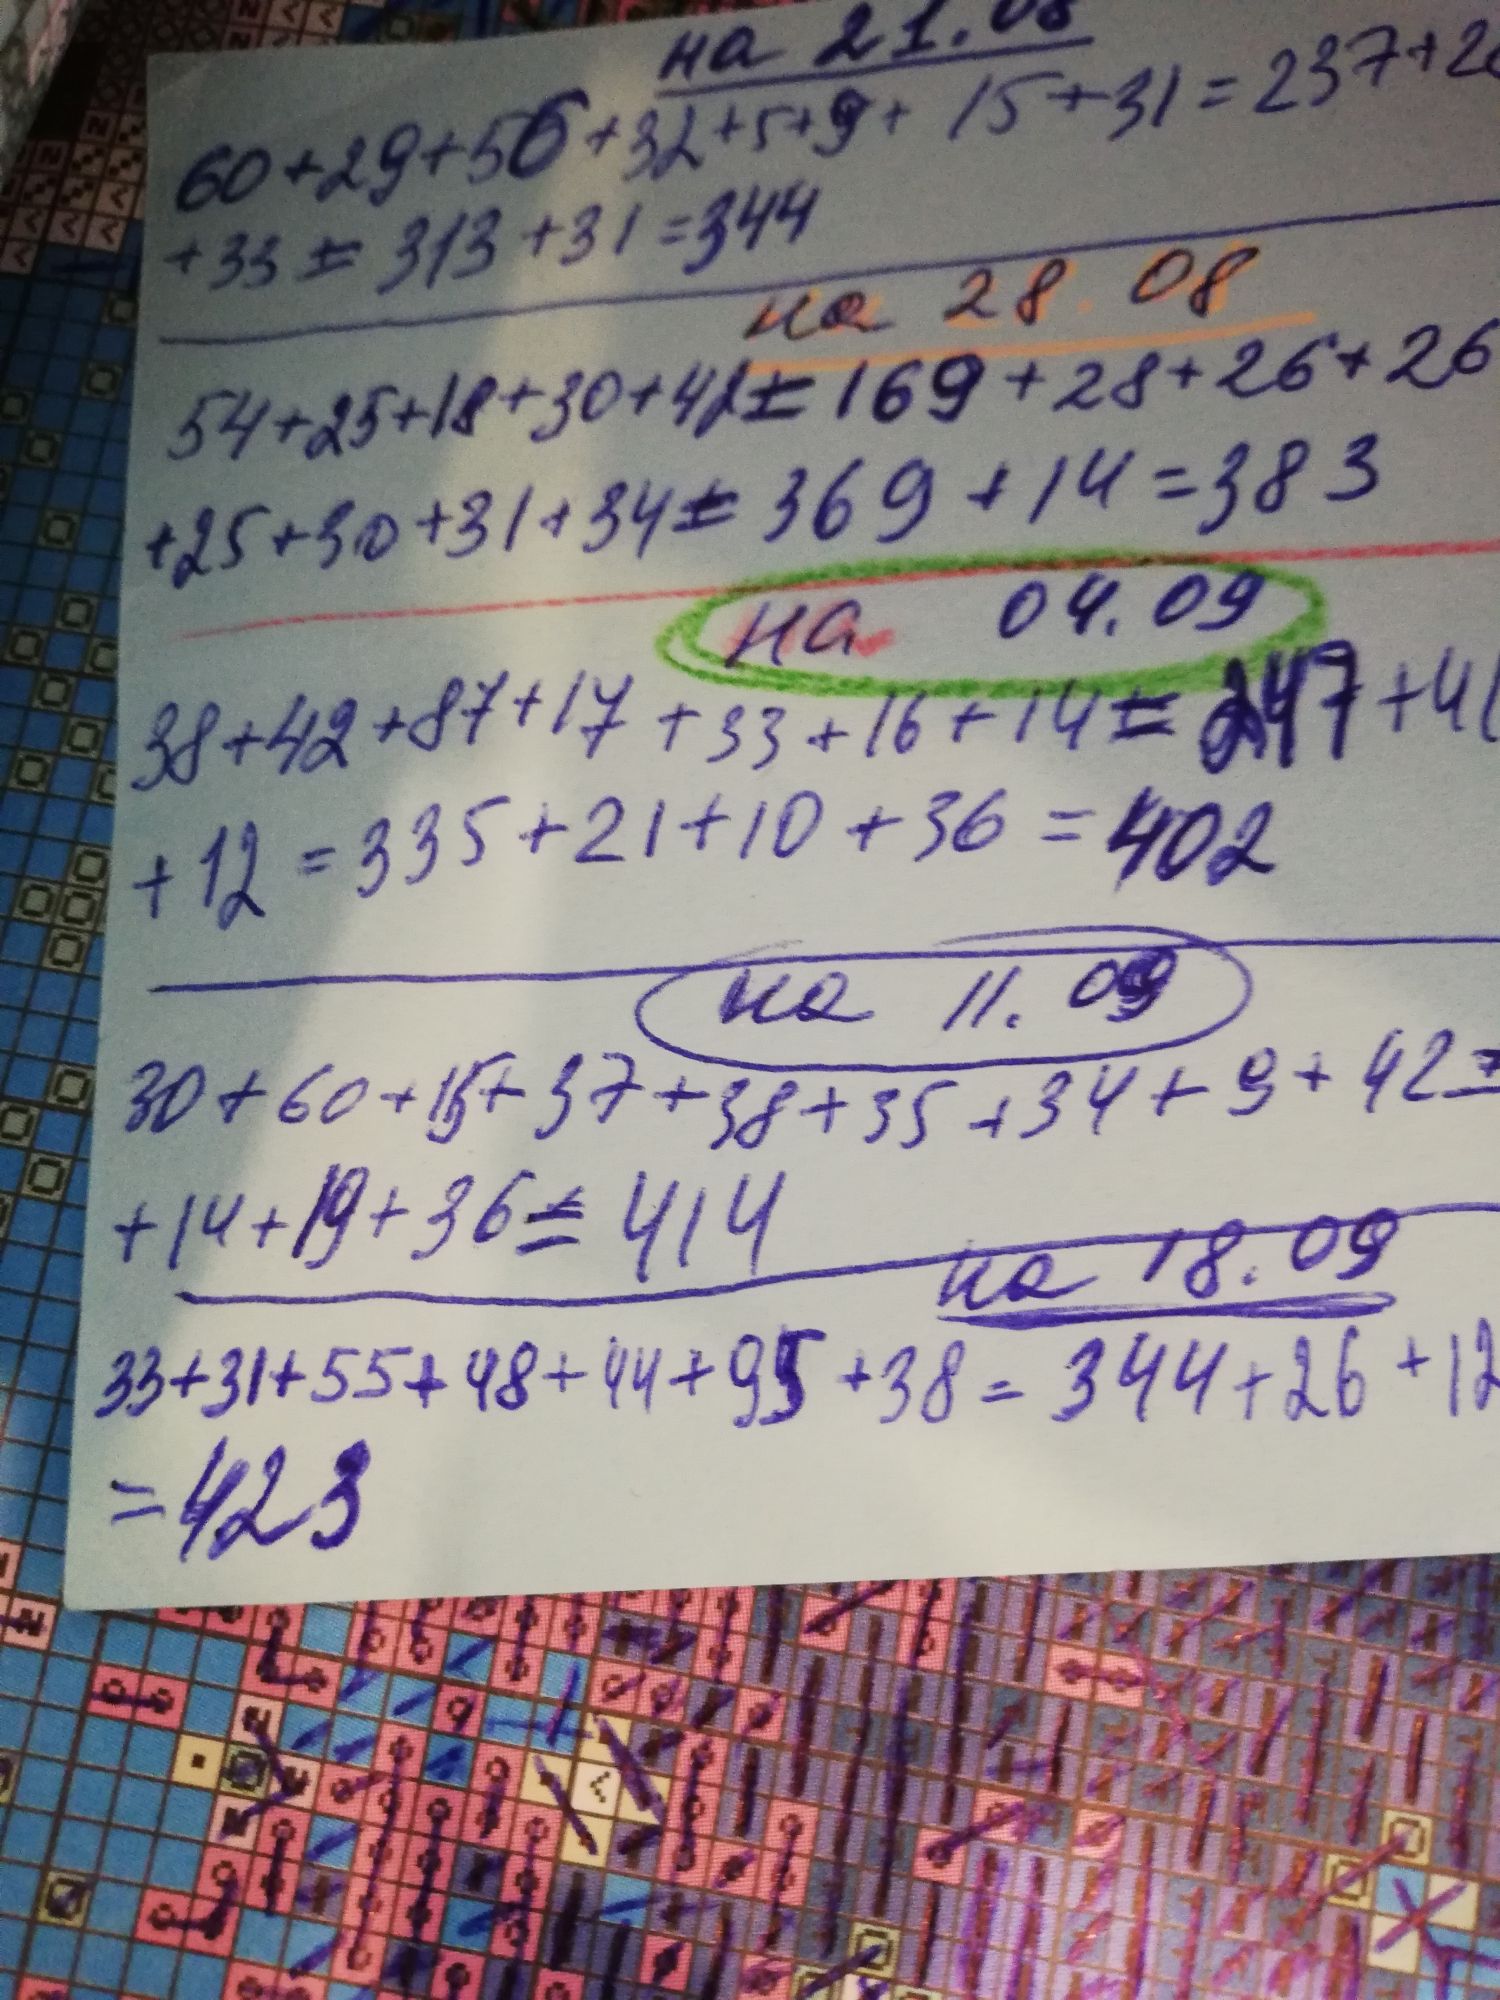 на 21.08
60+29+56+32+5+9+ 15+31=237+2
+33 = 313+31=344
на 28.08
54+25+18+30+42= 169+28+26+26
+25+30+31+34= 369+14=383
на 04.09
38+42+87+17+33+16+14= 247+4
+12=335+21+10+36=402
на 11.09
30+60+15+37+38+35+34+9+42=
+14+19+36= 414
на 18.09
33+31+55+48+44+95+38=344+26+12
=423